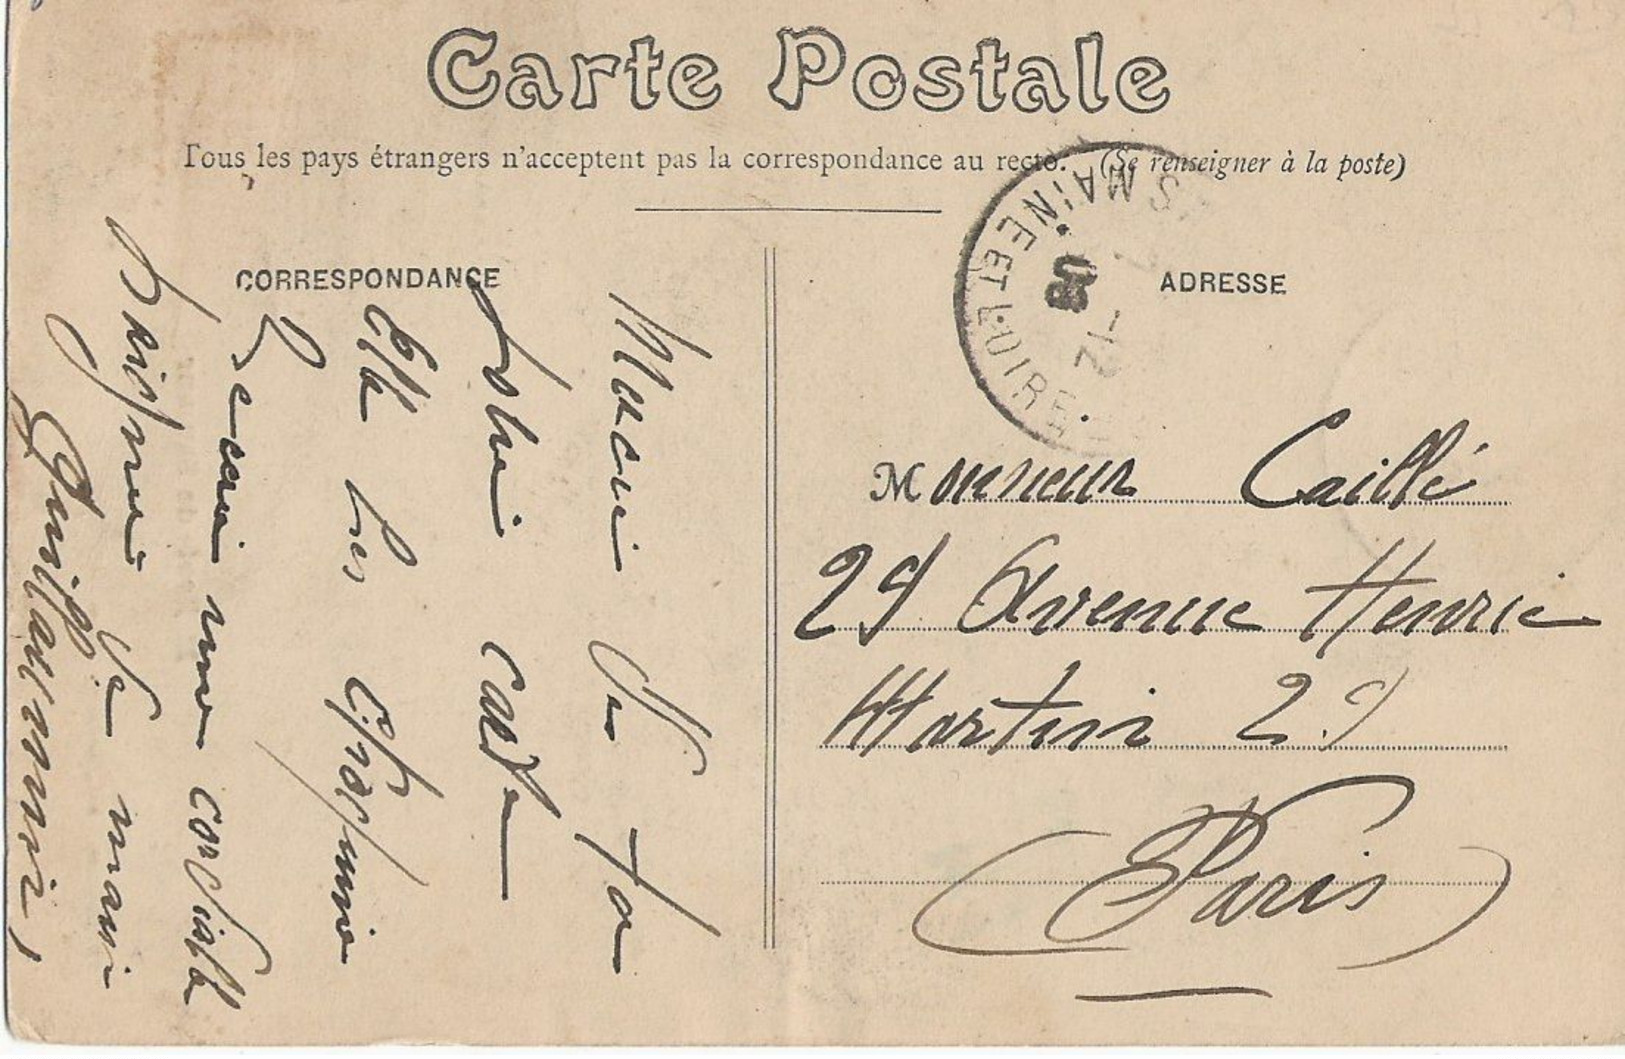 Carte Postale
Tous les pays étrangers n'acceptent pas la correspondance au recto. (Se renseigner à la poste)
CORRESPONDANCE
ADRESSE
MAINE ET LOIRE
12
08
Monsieur Caillé
29 Avenue Henrie
Martin 29
Paris
Merci de ta
Jolie carte
Elle est
Recevie une cordiale
de main